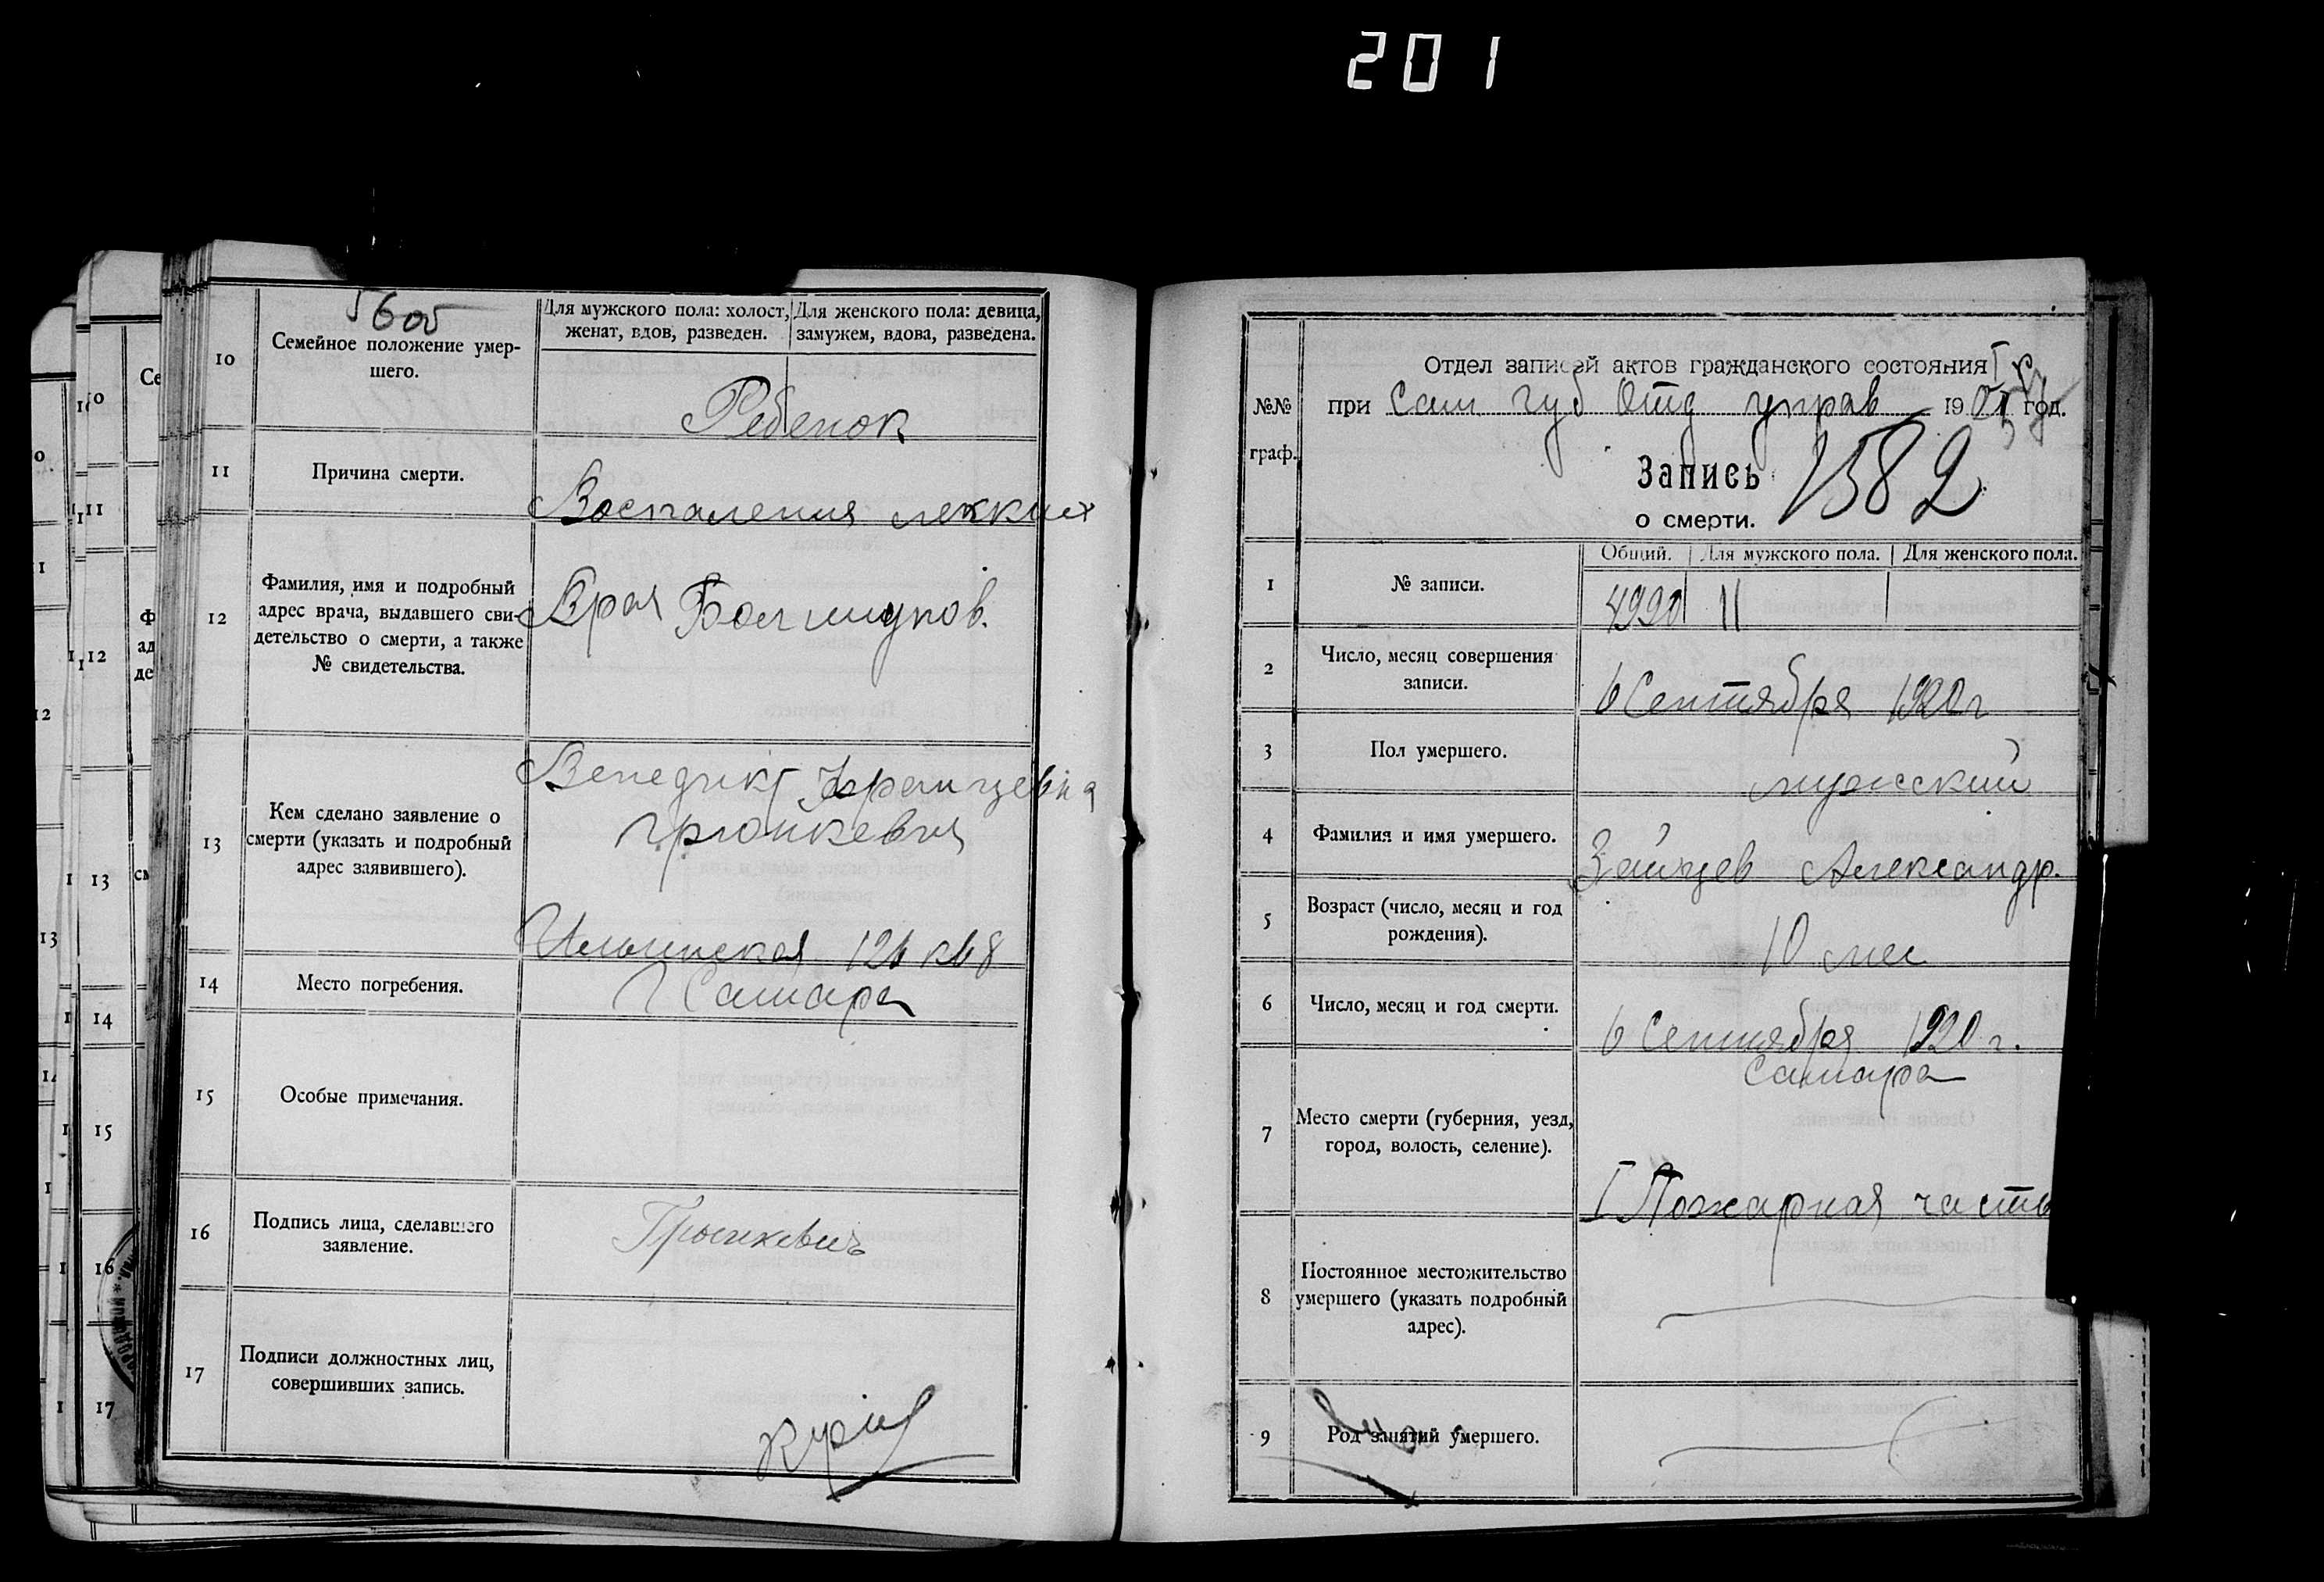 201
5605
10
Семейное положение умер-
шего.
Для мужского пола: холост,
женат, вдов, разведен.
Для женского пола: девица,
замужем, вдова, разведена.
Ребенок
11
Причина смерти.
Воспаления лекких
12
Фамилия, имя и подробный
адрес врача, выдавшего сви-
детельство о смерти, а также
№ свидетельства.
Врач
13
Кем сделано заявление о
смерти (указать и подробный
адрес заявившего).
Венедикт
Ильинская 124 кв 8
14
Место погребения.
г Самара
15
Особые примечания.
16
Подпись лица, сделавшего
заявление.
17
Подписи должностных лиц,
совершивших запись.
№№
граф.
Отдел записей актов гражданского состояния
при Сам губ Отд управ 19 год.
Запись 1582
о смерти.
Общий. Для мужского пола. Для женского пола.
1
№ записи.
4990 11
2
Число, месяц совершения
записи.
6 Сентября 1920 г
3
Пол умершего.
мужский
4
Фамилия и имя умершего.
Зайцев Александр.
5
Возраст (число, месяц и год
рождения).
10 мес
6
Число, месяц и год смерти.
6 Сентября 1920 г.
7
Место смерти (губерния, уезд,
город, волость, селение).
Самара
I Пожарная часть
8
Постоянное местожительство
умершего (указать подробный
адрес).
9
Род занятий умершего.